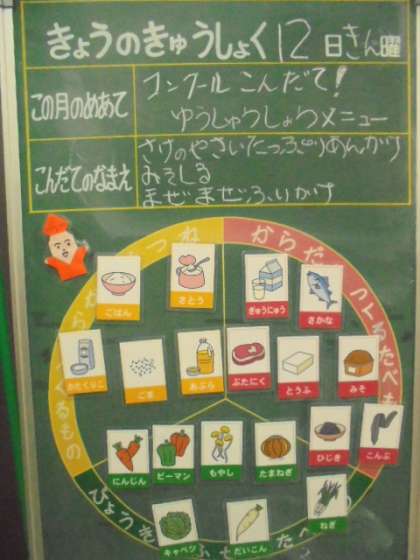 きょうのきゅうしょく 12日きん曜
この月のめあて
コンクールこんだて!
ゆうしゅうしょくメニュー
こんだてのなまえ
さけのやさいたっぷりあんかけ
みそしる
まぜまぜふりかけ
からだ
つくるたべ
ごはん
さとう
ぎゅうにゅう
さかな
かたくりこ
ごま
あぶら
ぶたにく
とうふ
みそ
にんじん
ピーマン
もやし
たまねぎ
ひじき
こんぶ
キャベツ
だいこん
ねぎ